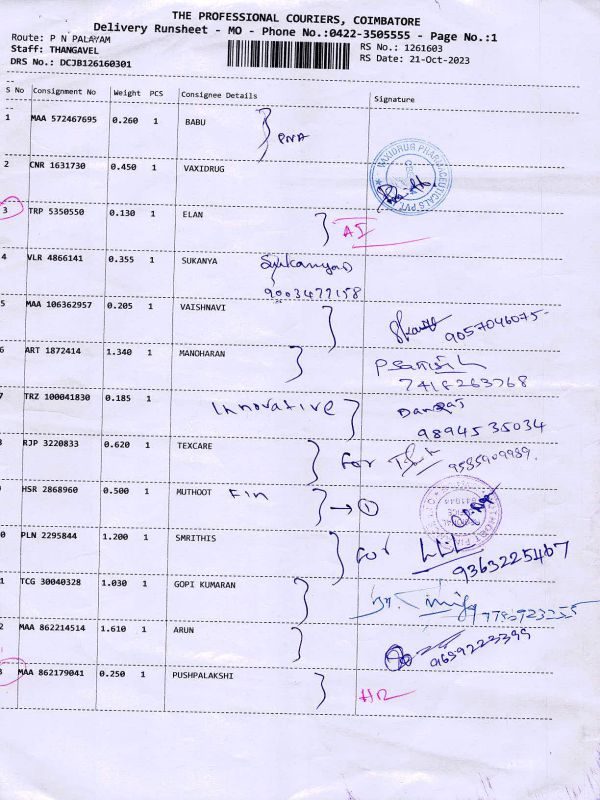 THE PROFESSIONAL COURIERS, COIMBATORE
Delivery Runsheet - MO - Phone No.:0422-3505555 - Page No.:1
Route: P N PALAYAM
Staff: THANGAVEL
RS No.: 1261603
DRS No.: DCJB126160301
RS Date: 21-Oct-2023
S No Consignment No Weight PCS Consignee Details Signature
1 MAA 572467695 0.260 1 BABU
PNA
2 CNR 1631730 0.450 1 VAXIDRUG
VAXIDRUG PHARMACEUTICALS PVT
3 TRP 5350550 0.130 1 ELAN
AI
4 VLR 4866141 0.355 1 SUKANYA Sukanya
9003477158
5 MAA 106362957 0.205 1 VAISHNAVI
9057046075
6 ART 1872414 1.340 1 MANOHARAN
7418263768
7 TRZ 100041830 0.185 1 Innovative
9894535034
RJP 3220833 0.620 1 TEXCARE
For 9585909989.
HSR 2868960 0.500 1 MUTHOOT Fin → 1
0 PLN 2295844 1.200 1 SMRITHIS
For 9363225467
1 TCG 30040328 1.030 1 GOPI KUMARAN
2 MAA 862214514 1.610 1 ARUN
9659223399
3 MAA 862179041 0.250 1 PUSHPALAKSHI